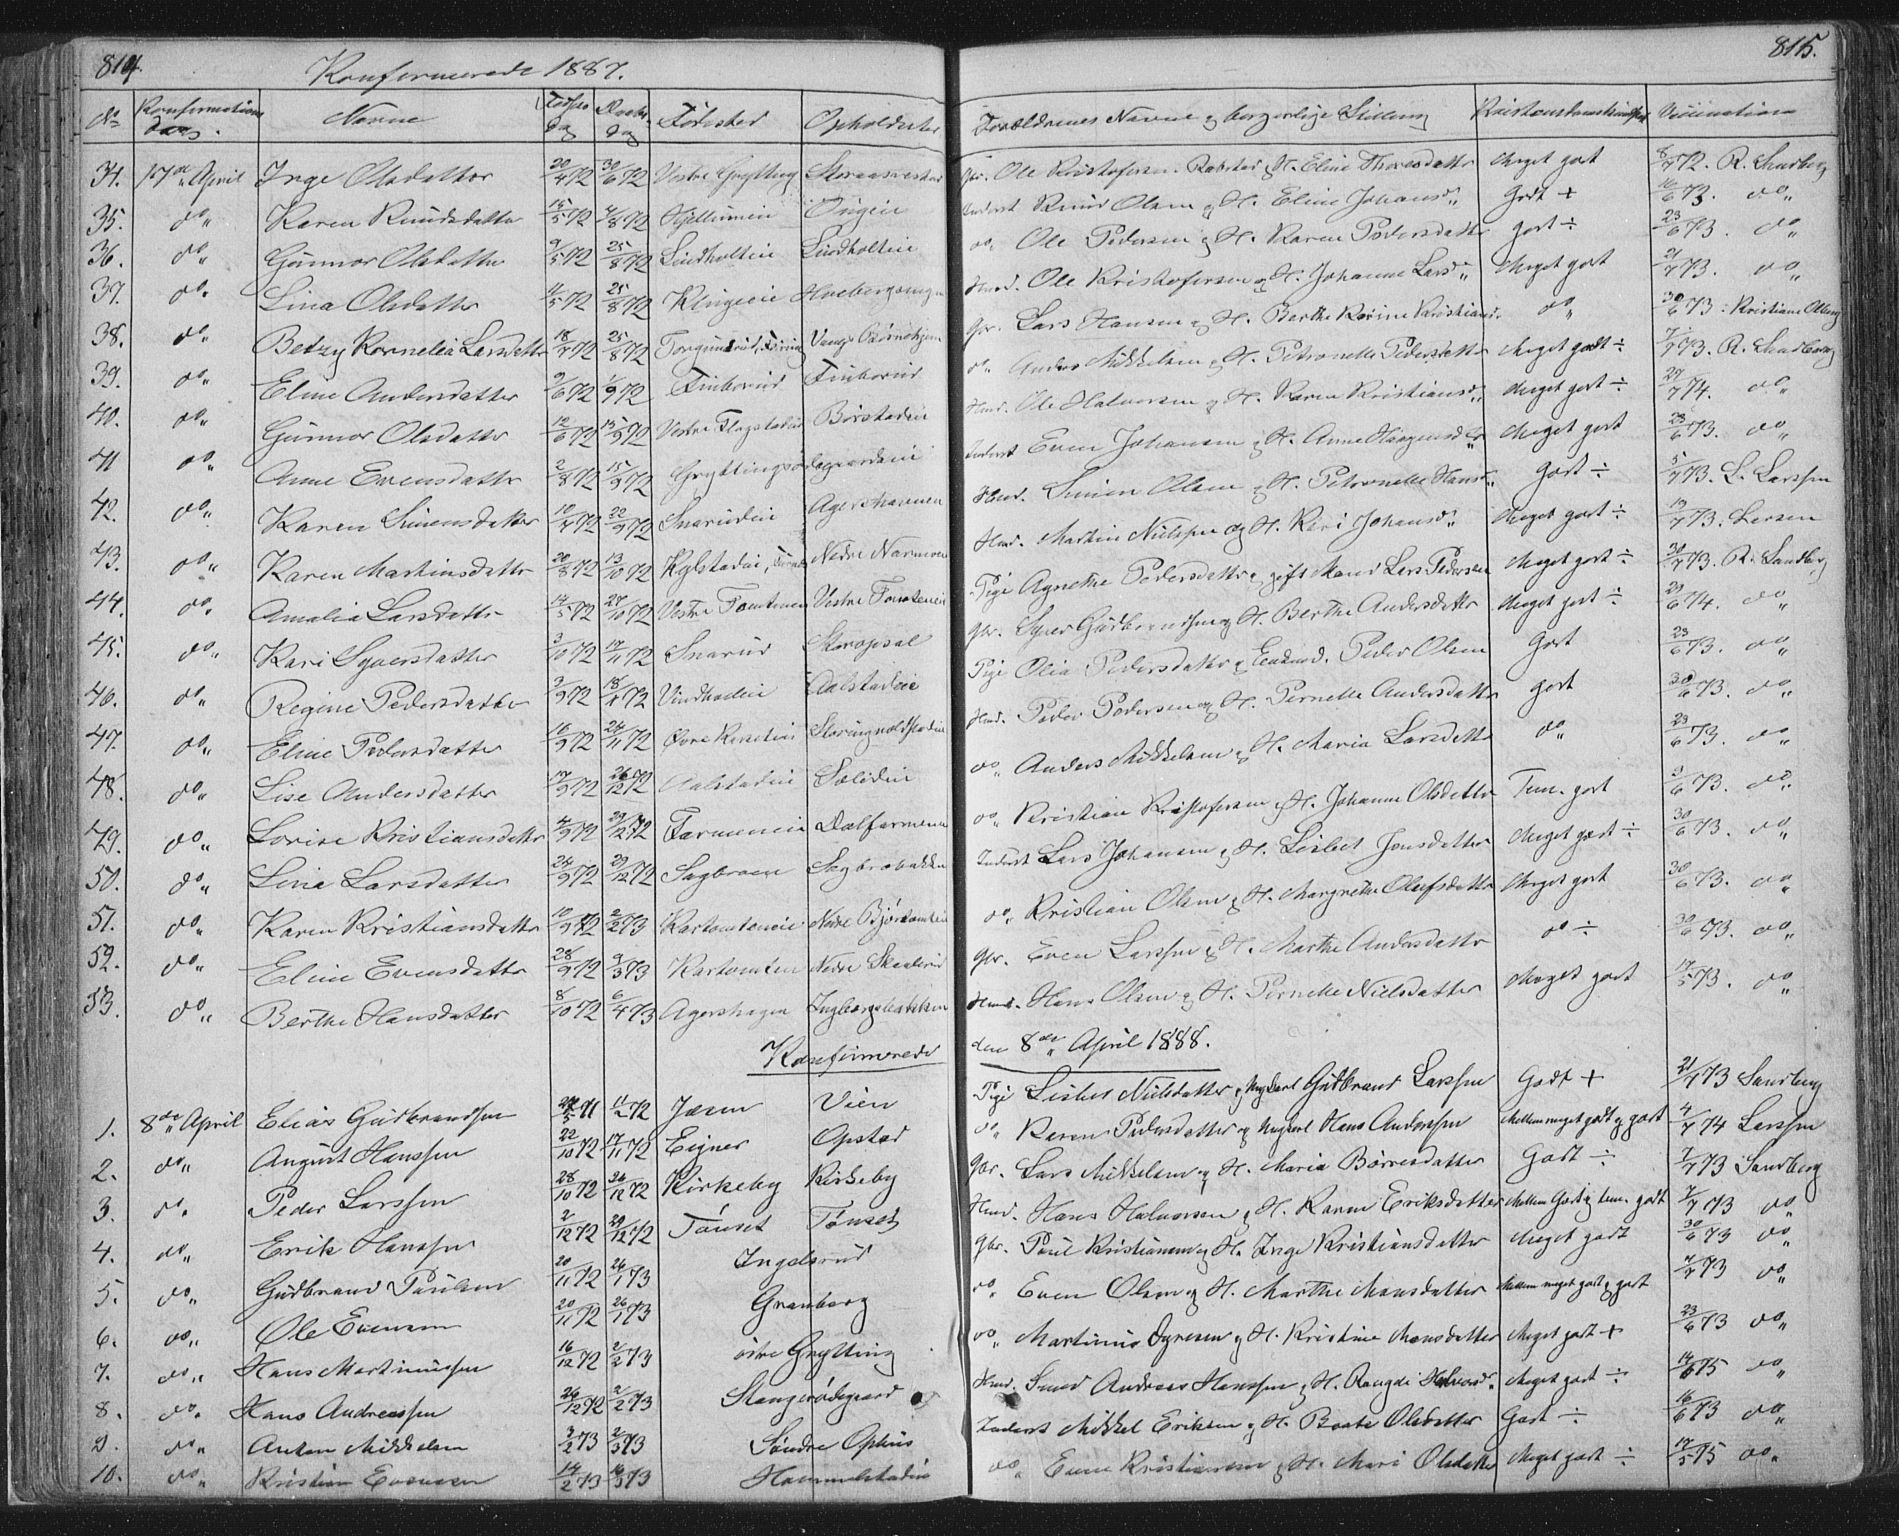 814. Konfirmerede 1887. 815.
No Konfirmations dag. Navne Fødsels dag Daabs dag Fødested Opholdssted Forældrenes Navne og borgerlige Stilling Kristendomskundskab Vaccination
34. 17de April Inge Olsdatter 20/4 72 30/6 72 Vestre Grytting Storaasvestad Gbr. Ole Kristofersen Rabstad og H. Eline Thoresdatter Meget godt 8/7 72. R. Sandberg
35. do Karen Knudsdatter 15/5 72 4/8 72 Hjellumeie Inderst Knud Olsen og H. Eline Johansd. Godt + 16/6 73. do
36. do Gunnor Olsdatter 9/5 72 25/8 72 Lindholteie Lindholteie do Ole Pedersen og H. Karen Pedersdatter godt ÷ 23/6 73. do
37. do Lina Olsdatter 11/5 72 25/8 72 Klingeie Husd. Ole Kristofersen og H. Johanne Larsd. Meget godt 21/7 73. do
38. do Betzy Kornelia Larsdatter 18/7 72 25/8 72 Vangs Børnehjem Gbr. Lars Hansen og H. Berthe Karine Kristiansd. do 30/6 73. Kristiane
39. do Eline Andersdatter 9/6 72 1/9 72 Finborud Finborud do Anders Mikkelsen og H. Petronelle Pedersdatter Meget godt ÷ 7/7 73. R. Sandberg
40. do Gunnor Olsdatter 12/6 72 15/9 72 Vestre Flagstadeie Børstadeie Husd. Ole Halvorsen og H. Karen Kristiansd. Meget godt ÷ 27/7 74. do
41 do Anne Evensdatter 2/8 72 15/9 72 Gryttingsødegaardeie Inderst Even Johansen og H. Anne Haagensd. Meget godt 23/6 73. do
42. do Karen Simensdatter 10/7 72 22/9 72 Snarudeie Husd. Simen Olsen og H. Petronelle Hansd. Godt ÷ 5/7 73. L. Larssen
43. do Karen Martinsdatter 20/8 72 13/10 72 Kylstadeie, Nedre Husd. Martin Nielsen og H. Kari Johansd. Meget godt ÷ 19/7 73. Larsen
44. do Amalia Larsdatter 14/5 72 27/10 72 Vestre Tomteneie Vestre Tomteneie Pige Agnethe Pedersdatter, gift Mand Lars Pedersen Meget godt ÷ 30/7 73. R. Sandberg
45. do Kari Syversdatter 3/10 72 17/11 72 Snarud Skaropsal Gbr. Syver Gudbrandsen og H. Berthe Andersdatter Meget godt ÷ 29/6 74. do
46. do Regine Pedersdatter 3/9 72 Vindhadeie Aalstadeie Pige Olia Pedersdatter og Peder Olsen Godt 23/6 73. do
47. do Eline Pedersdatter 16/9 72 24/11 72 Øvre Husd. Peder Pedersen og H. Pernelle Andersdatter godt 30/6 73. do
48. do Lise Andersdatter 17/9 72 26/12 72 Aalstadeie Sælideie do Anders Mikkelsen og H. Maria Larsdatter do 23/6 73. do
49. do Lovise Kristiansdatter 4/9 72 29/12 72 Farmeneie Dalfarmen do Kristian Kristofersen og H. Johanne Olsdatter Tem. godt 9/6 73. do
50. do Lina Larsdatter 24/9 72 29/12 72 Sagbroen Sagbrobakken Inderst Lars Johansen og H. Lisbet Jensdatter Meget godt ÷ 30/6 73. do
51. do Karen Kristiansdatter 10/9 72 2/2 73 Kartomteneie Nedre do Kristian Olsen og H. Margrethe Olufsdatter Meget godt 30/6 73. do
52. do Eline Evensdatter 28/9 72 9/3 73 Kartomten Nedre Skaalerud Gbr. Even Larssen og H. Marthe Andersdatter do ÷ 30/6 73. do
53. do Berthe Hansdatter 8/10 72 6/4 73 Agershagen Ingeborgsbakken Husd. Hans Olsen og H. Pernelle Nielsdatter Meget godt 17/5 73. do
Konfirmerede den 8de April 1888.
1. 8de April Elias Gudbrandsen 11/2 72 Jæren Vien Pige Lisbet Nielsdatter og Ungkarl Gudbrand Larssen Godt + 21/7 73 Sandberg
2. do August Hanssen 22/10 72 17/11 72 Eigner Opstad do Karen Pedersdatter og Ungkarl Hans Anderssen Mellem meget godt og godt 4/7 74 Larssen
3. do Peder Larssen 28/10 72 26/12 72 Kirkeby Kirkeby Gbr. Lars Mikkelsen og H. Maria Børresdatter Godt ÷ 7/7 73 Sandberg
4. do Erik Hanssen 2/12 72 29/12 72 Tønset Tønset Husd. Hans Halvorsen og H. Karen Eriksdatter Mellem Godt og tem. godt 7/7 73 do
5. do Gudbrand Paulsen 20/11 72 26/1 73 Ingelsrud Gbr. Paul Kristiansen og H. Inge Kristiansdatter Meget godt 30/6 73 do
6. do Ole Evensen 20/11 72 26/1 73 Granberg do Even Olsen og H. Marthe Monsdatter Mellem meget godt og godt 7/7 73 do
7. do Hans Martinussen 16/12 72 2/2 73 østre Grytting do Martinus Syversen og H. Kristine Monsdatter Meget godt + 23/6 73 do
8. do Hans Andreassen 26/12 72 2/2 73 Stangerødegaard Husd. Smed Andreas Hanssen og H. Rangdi Halvorsd. Meget godt ÷ 14/6 75 do
9. do Anton Mikkelsen 3/2 73 2/3 73 Søndre Ophus Inderst Mikkel Eriksen og H. Beate Olsdatter Godt ÷ 16/6 73 do
10. do Kristian Evensen 14/2 73 16/3 73 Hammelstadeie do Even Kristiansen og H. Mari Olsdatter Meget godt ÷ 17/5 75 do